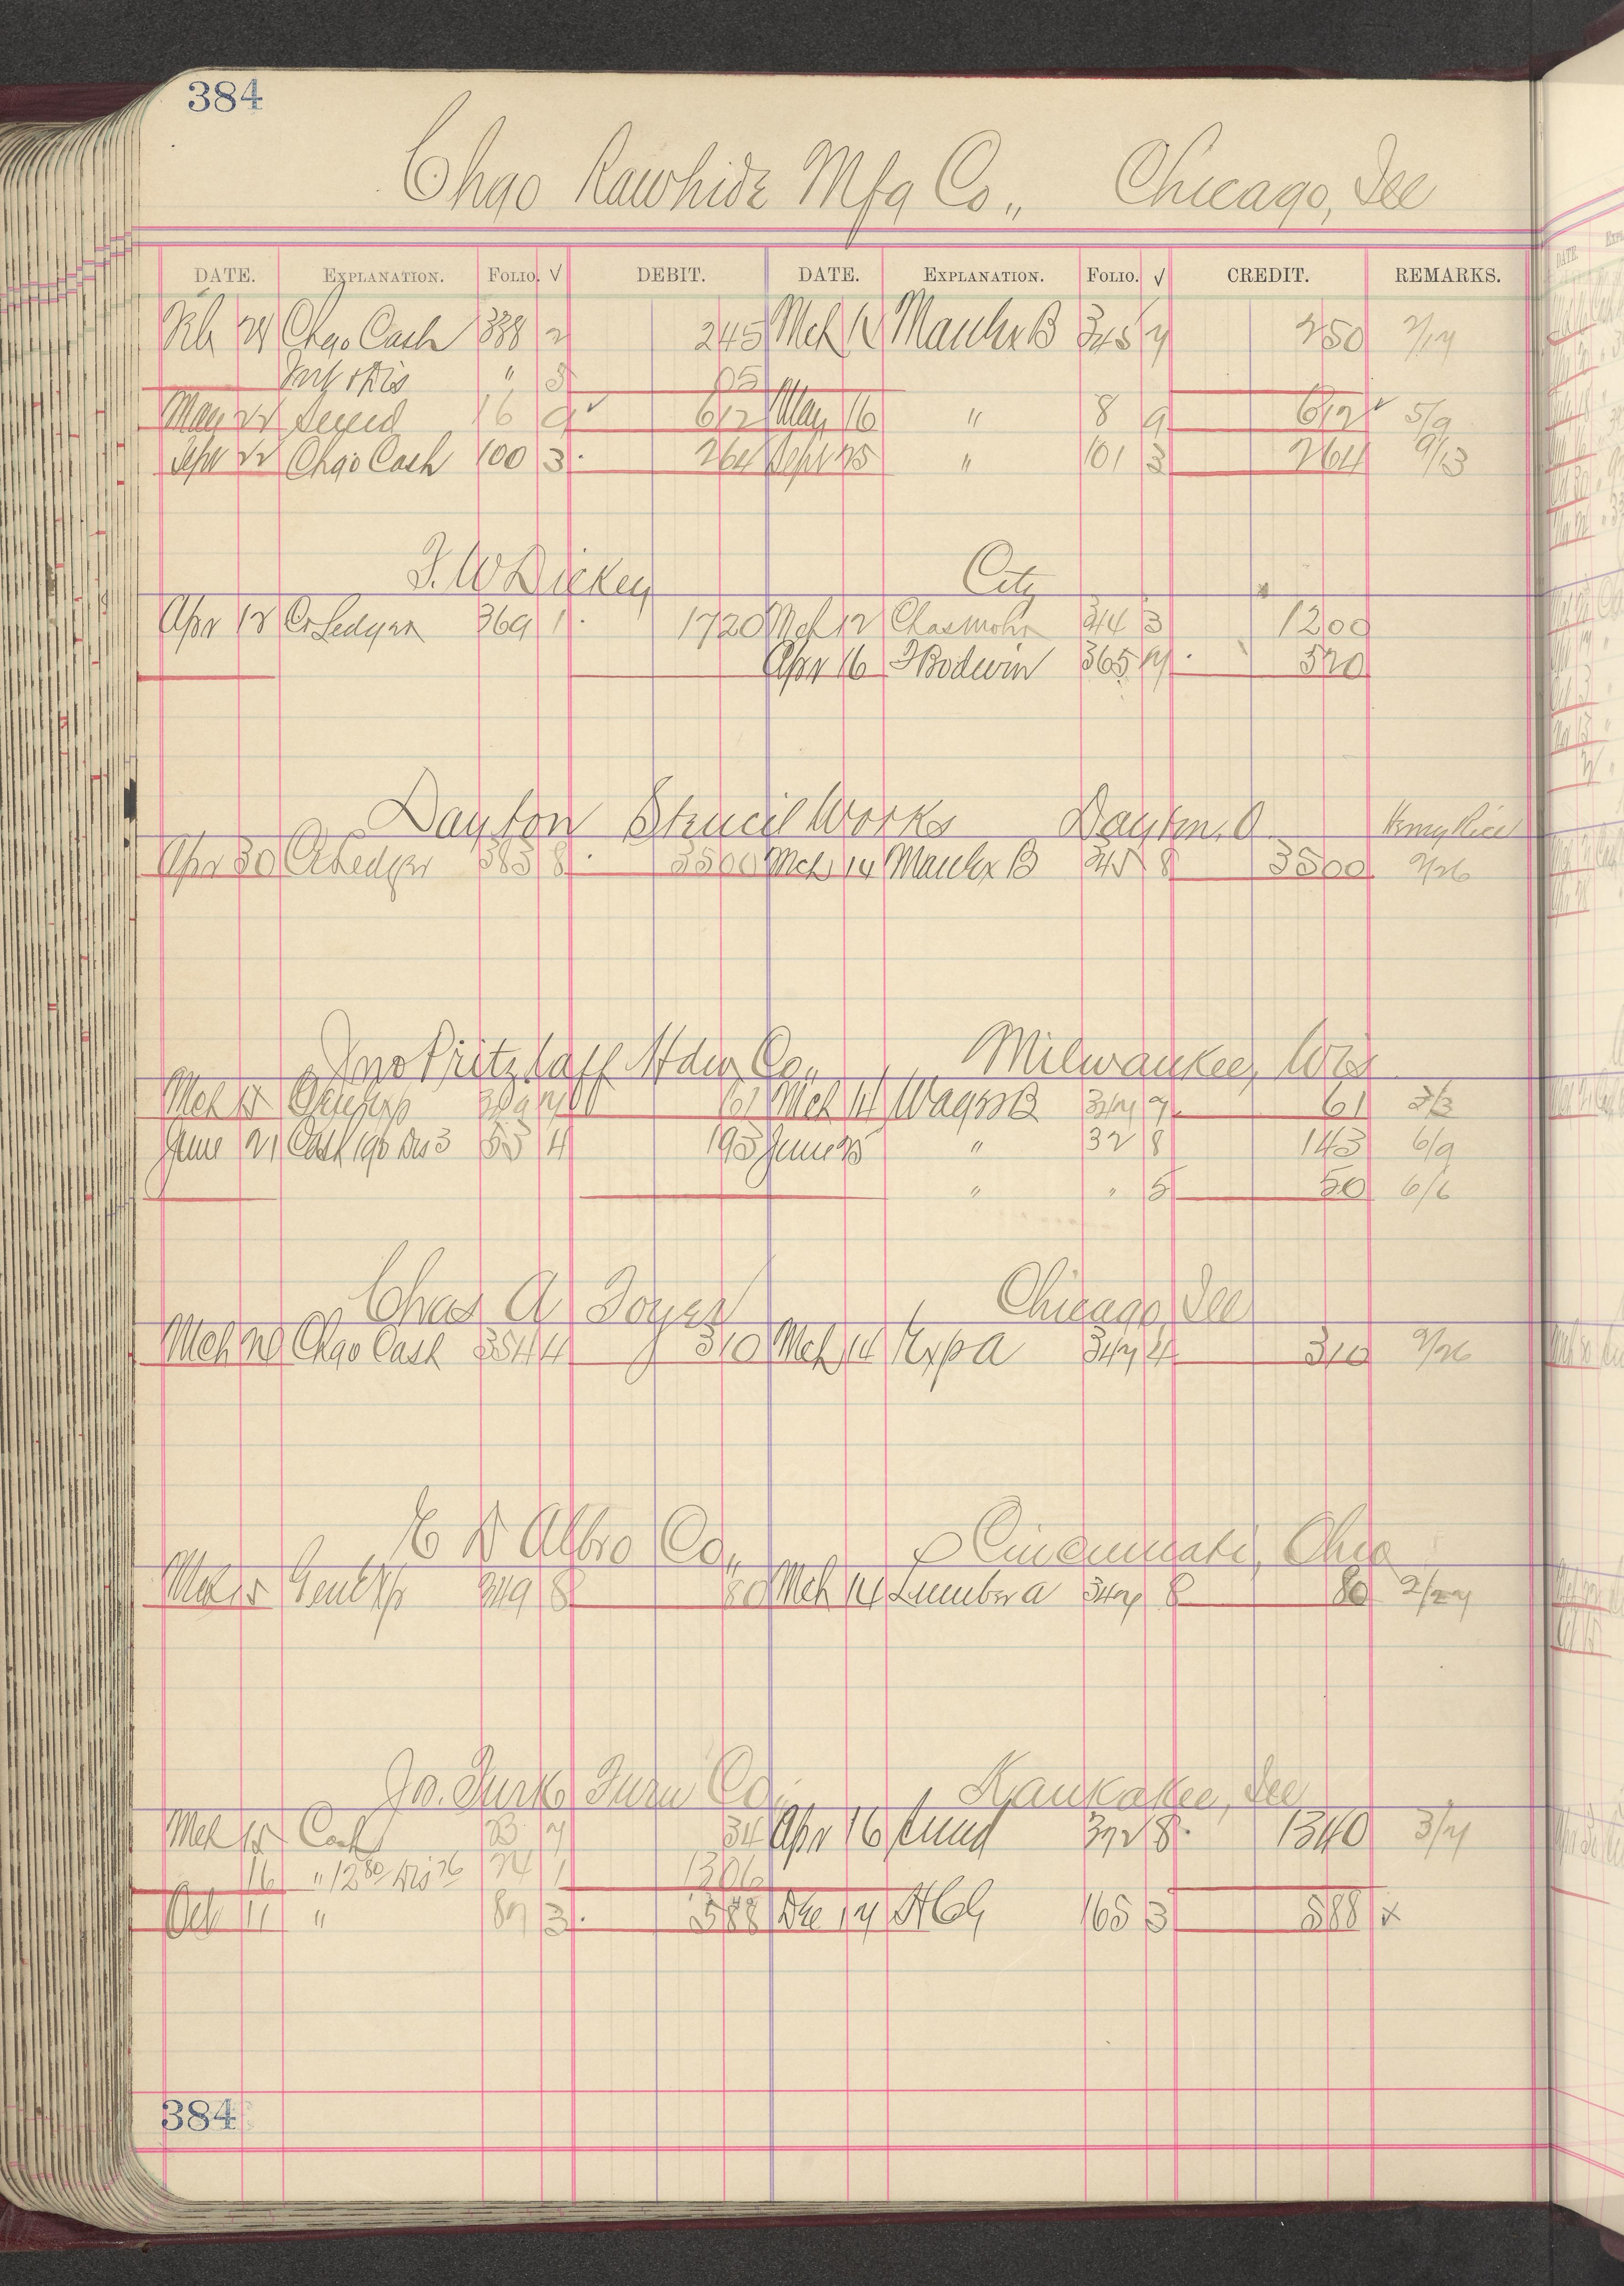 384
Chgo Rawhide Mfg Co., Chicago, Ill
DATE. EXPLANATION. FOLIO. √ DEBIT. DATE. EXPLANATION. FOLIO. √ CREDIT. REMARKS.
Feb 24 Chgo Cash 338 2 245 Mch 12 Mauchx B 345 7 250 2/17
Int & Dis " 5 05
May 22 16 9 √ 612 May 16 " 8 9 612 √ 5/9
Sept 22 Chgo Cash 100 3 264 Sept 25 " 101 3 264 9/13
J. W Dickey City
Apr 18 Cr Ledger 369 1 1720 Mch 12 Chas Mohr 344 3 1200
Apr 16 J Bodwin 365 4 520
Dayton Stencil Works Dayton, O. Henry Rice
Apr 30 Cr Ledger 383 8 3500 Mch 14 Mauchx B 345 8 3500 2/26
Jno Pritzlaff Hdw Co., Milwaukee, Wis
Mch 15 61 Mch 14 Wagon B 347 7 61 3/3
June 21 Cash 190 Dis 3 53 4 193 June 25 " 32 8 143 6/9
" " 5 50 6/6
Chas A Chicago, Ill
Mch 20 Chgo Cash 354 4 310 Mch 14 Exp A 347 4 310 2/26
E D Albro Co., Cincinnati, Ohio
Mch 15 Genl Exp 349 8 80 Mch 14 Lumber A 347 8 80 2/27
Jo. Turk Furn Co., Kankakee, Ill
Mch 15 Cash 3 7 34 Apr 16 372 8 1340 3/7
16 " 1280 Dis 26 24 1 1306
Oct 11 " 87 3 588 Dec 14 165 3 588 x
384